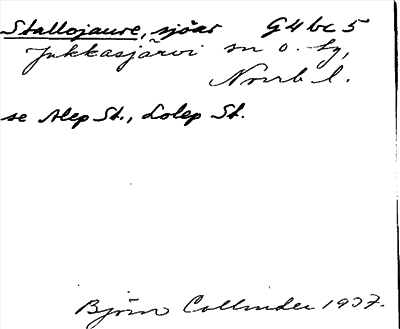 Stallojaure, sjöar G4 bc 5
Jukkasjärvi sn o. tg,
Norrb l.
se Alep St., Lolep St.
Björn Collinder 1937.